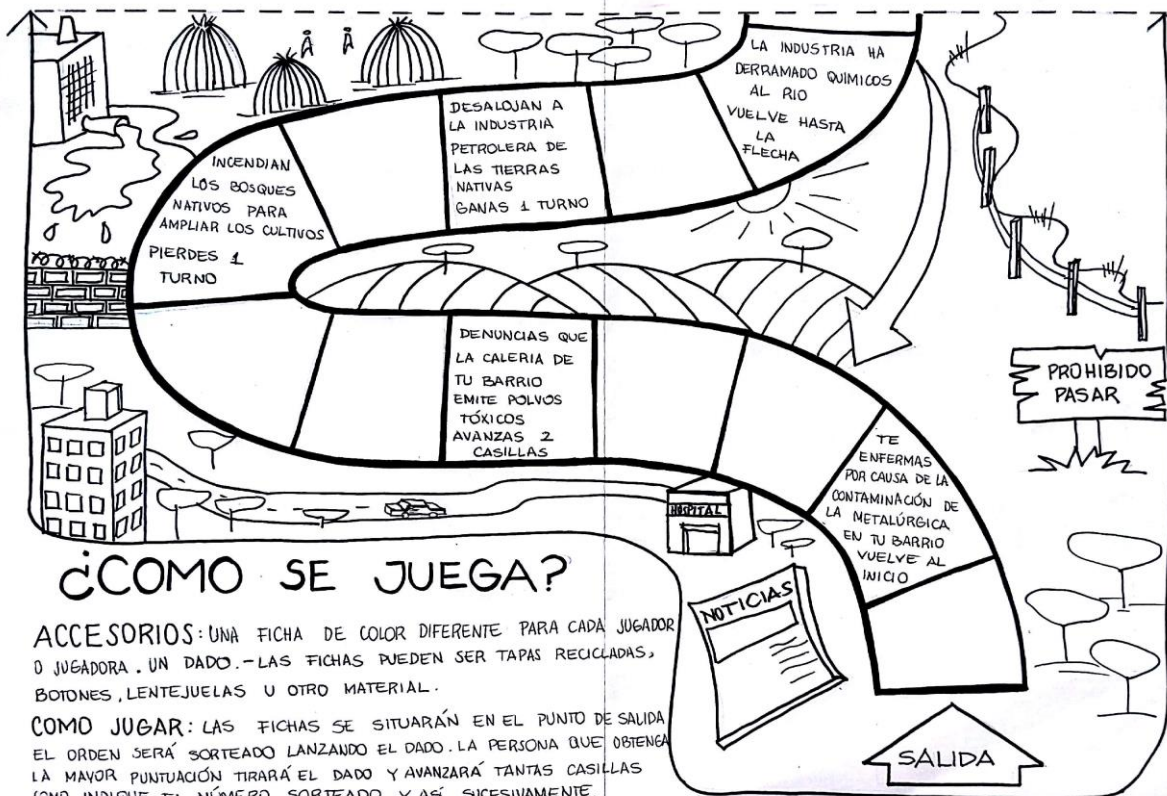 LA INDUSTRIA HA
DERRAMADO QUIMICOS
AL RIO
VUELVE HASTA
LA
FLECHA
DESALOJAN A
LA INDUSTRIA
PETROLERA DE
LAS TIERRAS
NATIVAS
GANAS 1 TURNO
INCENDIAN
LOS BOSQUES
NATIVOS PARA
AMPLIAR LOS CULTIVOS
PIERDES 1
TURNO
DENUNCIAS QUE
LA CALERIA DE
TU BARRIO
EMITE POLVOS
TÓXICOS
AVANZAS 2
CASILLAS
PROHIBIDO
PASAR
TE
ENFERMAS
POR CAUSA DE LA
CONTAMINACIÓN DE
LA METALÚRGICA
EN TU BARRIO
VUELVE AL
INICIO
HOSPITAL
NOTICIAS
SALIDA
¿COMO SE JUEGA?
ACCESORIOS: UNA FICHA DE COLOR DIFERENTE PARA CADA JUGADOR
O JUGADORA. UN DADO.-LAS FICHAS PUEDEN SER TAPAS RECICLADAS,
BOTONES, LENTEJUELAS U OTRO MATERIAL.
COMO JUGAR: LAS FICHAS SE SITUARÁN EN EL PUNTO DE SALIDA
EL ORDEN SERÁ SORTEADO LANZANDO EL DADO. LA PERSONA QUE OBTENGA
LA MAYOR PUNTUACIÓN TIRARÁ EL DADO Y AVANZARÁ TANTAS CASILLAS
COMO INDIQUE EL NÚMERO SORTEADO Y ASÍ SUCESIVAMENTE